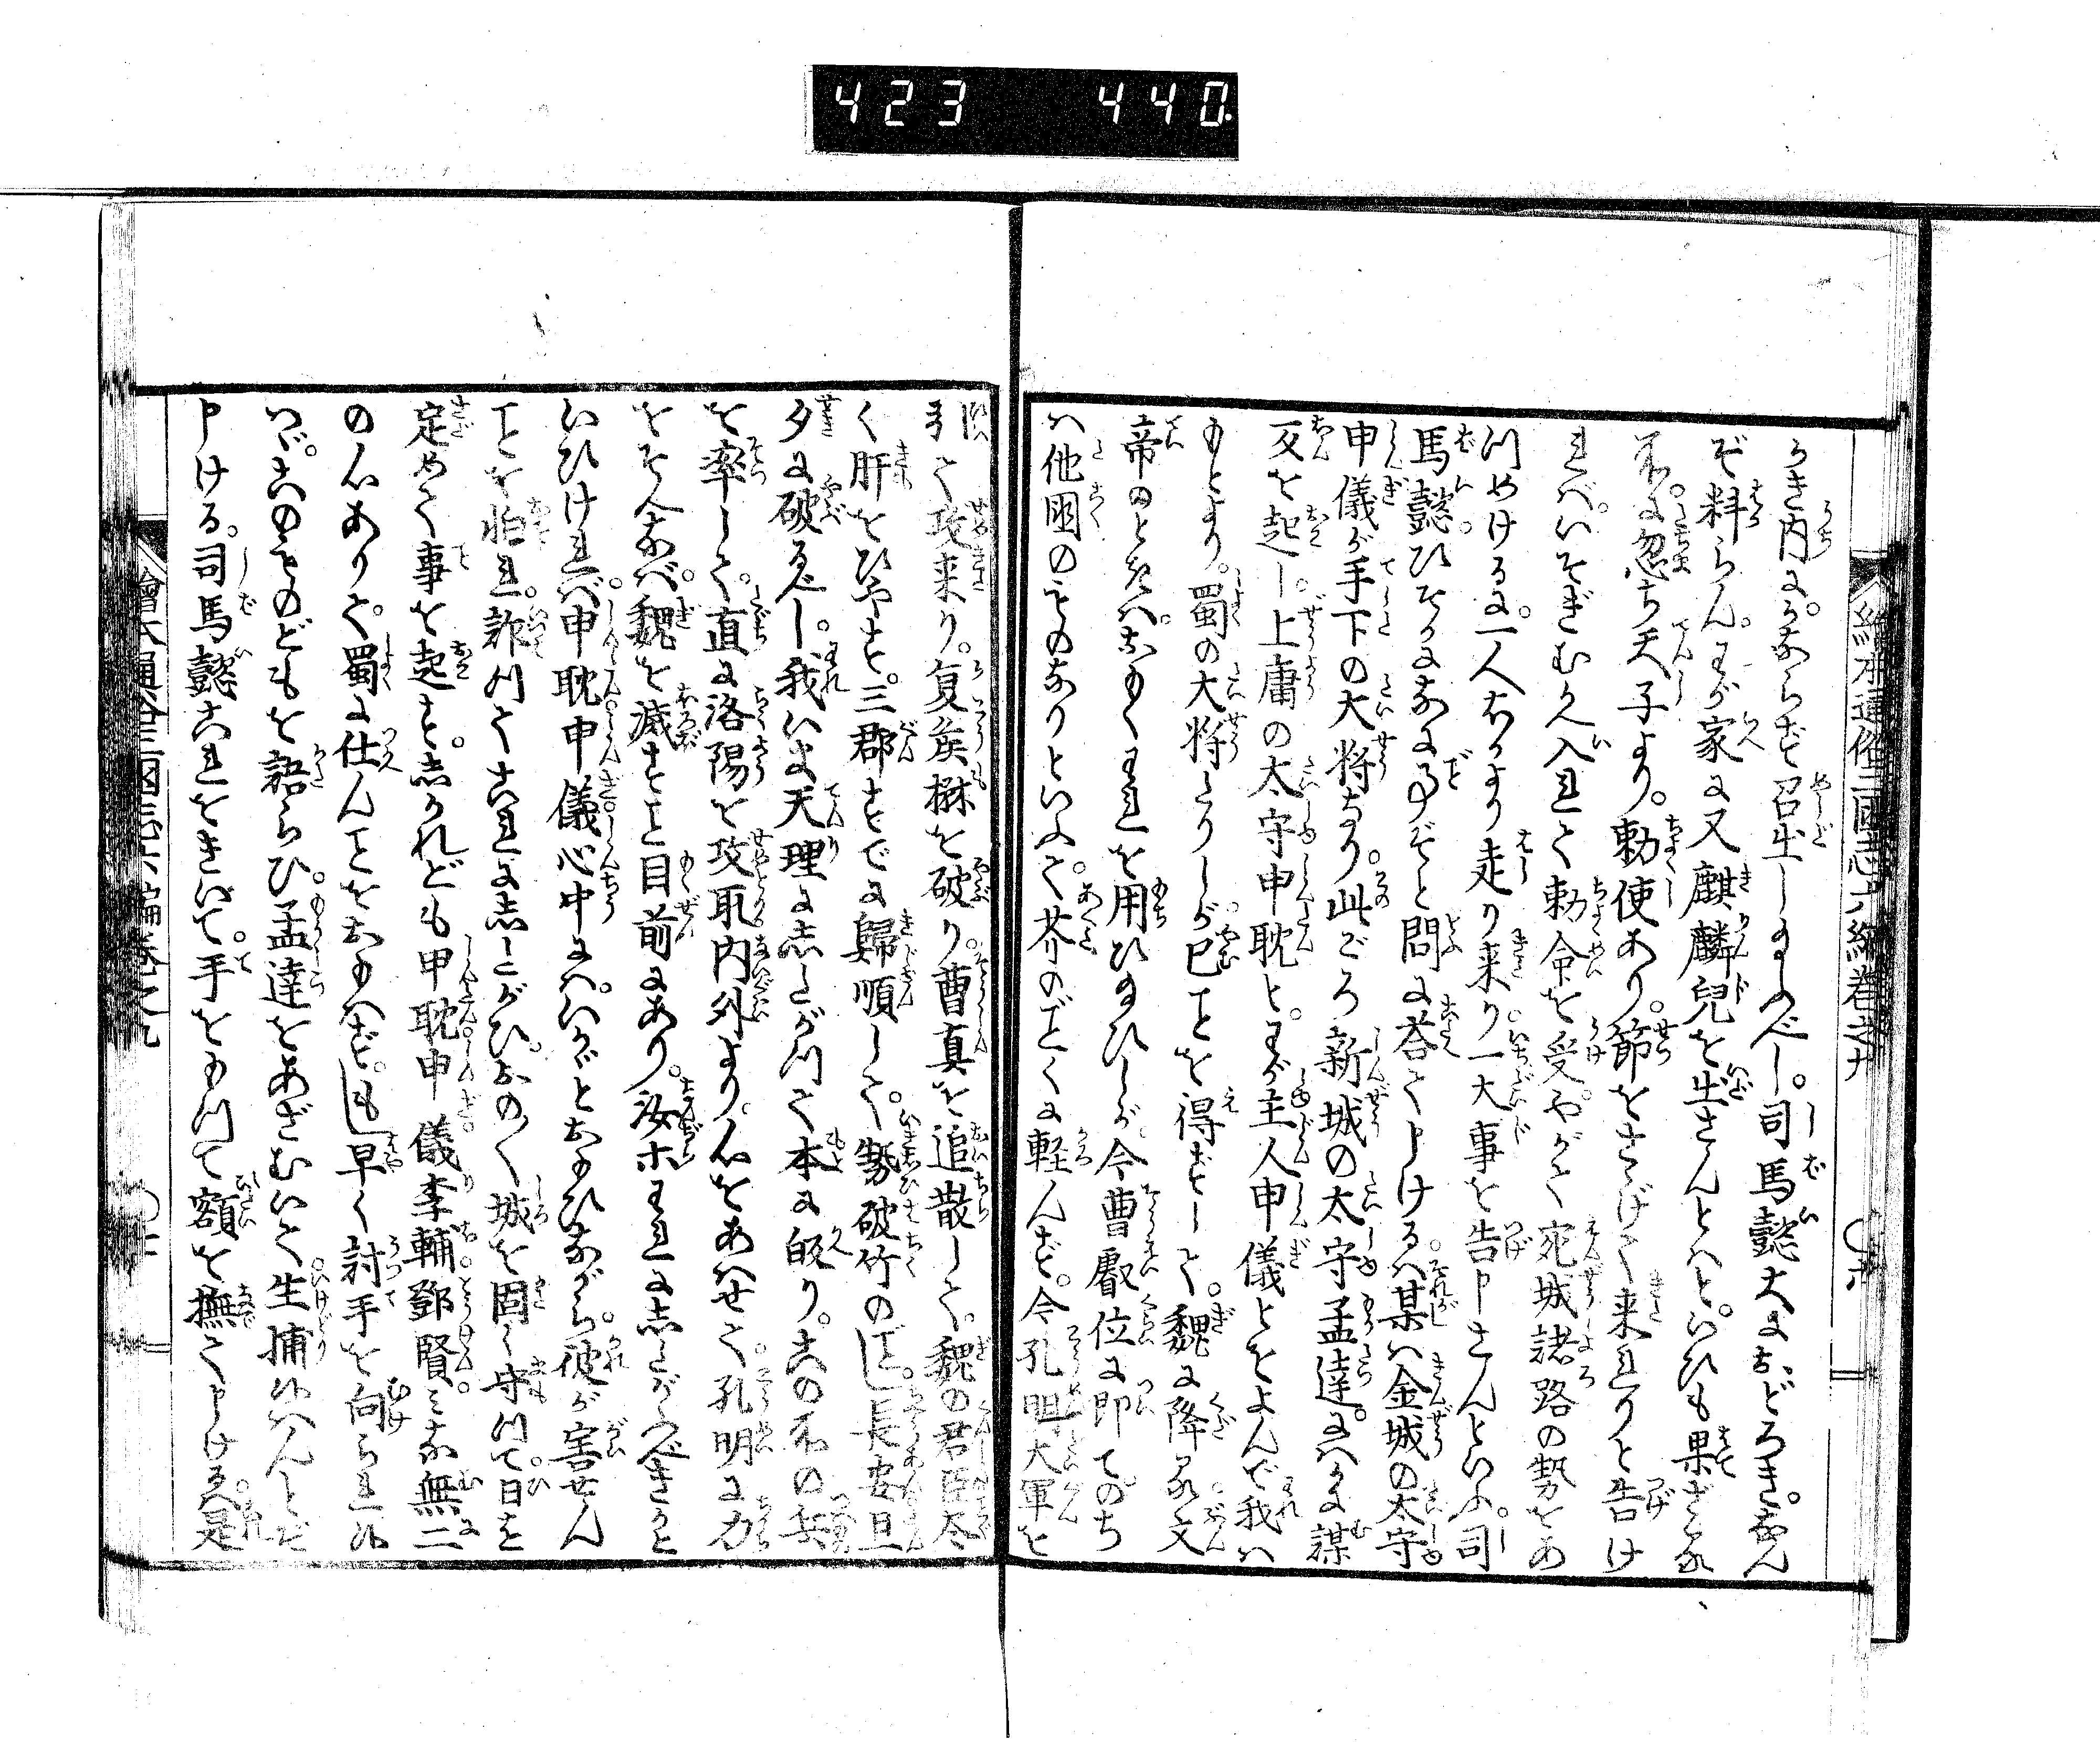 423 440.
繪本通俗三國志六編卷之九
うき内に。かならず召出し玉ふべし。司馬懿大におどろき。なん
ぞ料らん。わが家に又麒麟兒を生ざんとはと。いひも果ざる
所に。忽ち天子より。勅使あり。節をさゝげて来れりと告け
れば。いそぎむかへ入れて勅命を受。やがて宛城諸路の勢をあ
つめけるに。一人おくより走り来り。一大事を告申さんといふ。司
馬懿。ひそかになに事ぞと問に荅て申けるは。某は金城の太守
申儀が手下の大将なり。此ごろ新城の太守孟達。にはかに謀
反を起し。上庸の太守申耽と。わが主人申儀とをよんで我は
もとより。蜀の大将たりしが。已ことを得ずして。魏に降る。文
帝のときは。おもくわれを用ひ玉ひしが。今曹叡位に即てのち
は他國のものなりといふて。芥のごとくに軽んず。今孔明大軍を
引て攻来り。夏侯楙を破り。曹真を追散して。魏の君臣太
く肝をひやす。三郡すでに歸順して。勢破竹のごとし。長安旦
夕に破るべし。我いま天理にしたがつて本に皈り。この所の兵
を率して。直に洛陽を攻取。内外より。心をあはせて。孔明に力
をそへなば。魏を滅すこと目前にあり。汝等われにしたがふべきかと
いひければ。申耽申儀。心中には。いかゞとおもひながら。彼が害せん
ことを怕れ。詐つてこれにしたがひ。おのく城を固く守つて日を
定めて事を起す。しかれども申耽申儀李輔鄧賢。みな無二
の心ありて。蜀に仕んことをおもはず。もし早く討手を向られ候
はゞ。このものどもを語らひ。孟達をあざむいて生捕候はんとぞ
申ける。司馬懿これをきいて。手をもつて額を撫て申けるは。是
繪本通俗三國志六編卷之九